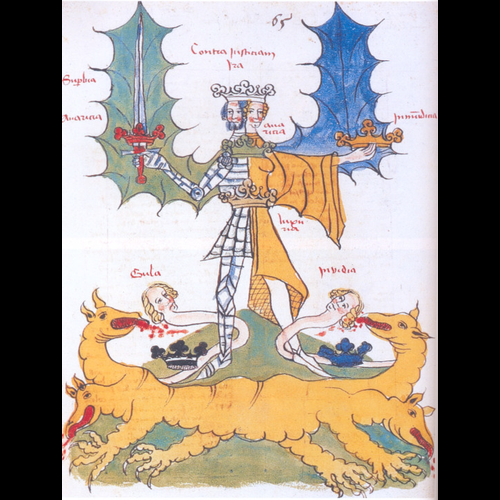 65
Contra Justiciam
Ira
Sup̄bia
Avaricia
ava
ricia
luxu
ria
Gula
Invidia